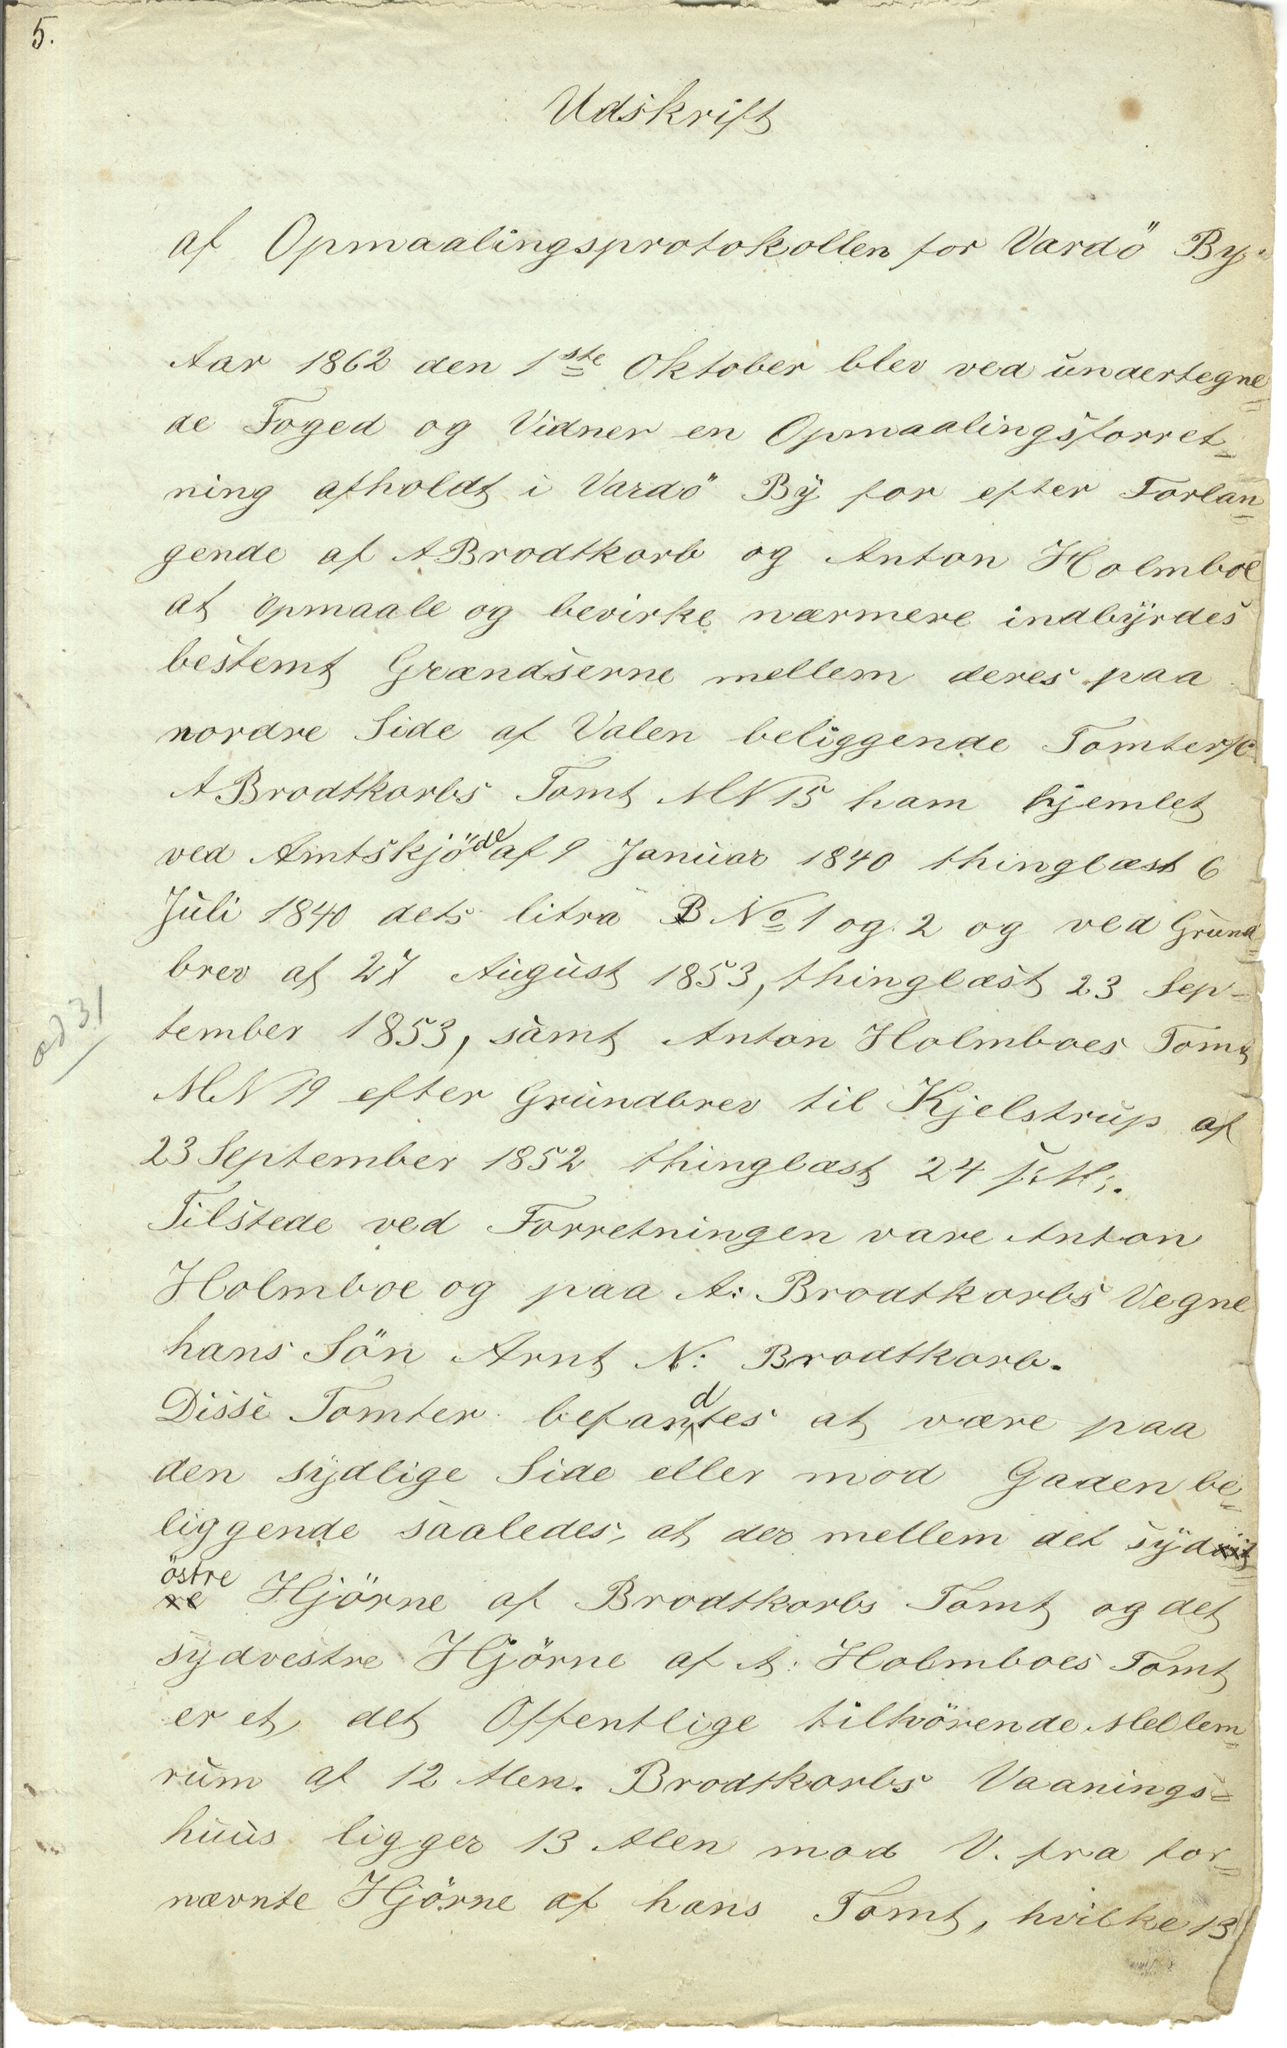 5.
Udskrift
af Opmaalingsprotokollen for Vardö By.
Aar 1862 den 1ste Oktober blev ved undertegne=
de Foged og Vidner en Opmaalingsforret=
ning afholdt i Vardö By for efter Forlan=
gende af A Brodtkorb og Anton Holmboe
at opmaale og bevirke nærmere indbyrdes
bestemt Grændserne mellem deres paa
nordre Side af Valen beliggende Tomter,
A Brodtkorbs Tomt MN 15 ham hjemlet
ved Amtskjöde af 9 Januar 1840 thinglæst 6
Juli 1840 dets litra B No 1 og 2 og ved Grund=
brev af 27 August 1853, thinglæst 23 Sep=
tember 1853, samt Anton Holmboes Tomt
ad 31
MN 19 efter Grundbrev til Kjelstrup af
23 September 1852 thinglæst 24 s. M.
Tilstede ved Forretningen vare Anton
Holmboe og paa A: Brodtkorbs Vegne
hans Sön Arnt N: Brodtkorb.
Disse Tomter befandtes at være paa
den sydlige Side eller mod Gaden be=
liggende saaledes, at der mellem det syd
östre Hjörne af Brodtkorbs Tomt og det
sydvestre Hjörne af A: Holmboes Tomt
er et, det Offentlige tilhörende Mellem=
rum af 12 Alen. Brodtkorbs Vaanings=
huus ligger 13 Alen mod V. fra for=
nævnte Hjörne af hans Tomt, hvilke 13